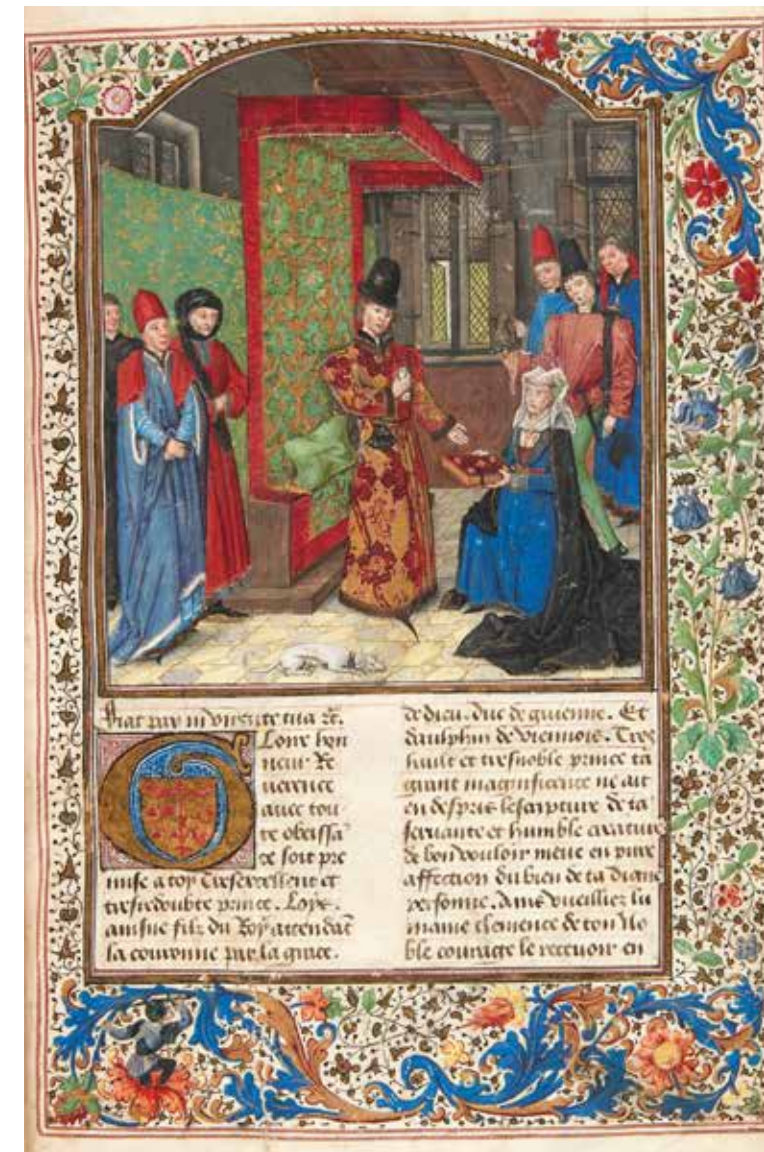 fiat pax in virtute tua ꝛc̄.
Gloire hon
neur Re
uerence
auec tou
te obeissā
ce soit pre
mise a toy Tresexcellent et
tresredoubte prince. Loys.
ainsne filz du Roy attendāt
la couronne par la grace.
de dieu. duc de guienne. Et
daulphin de viennois. Tres
hault et tresnoble prince ta
grant magnificence ne ait
en despris lescripture de ta
seruante et humble creature
de bon vouloir meue en pure
affection du bien de ta digne
personne. Ains vueilliez lu
maine clemence de ton No
ble courage le receuoir en